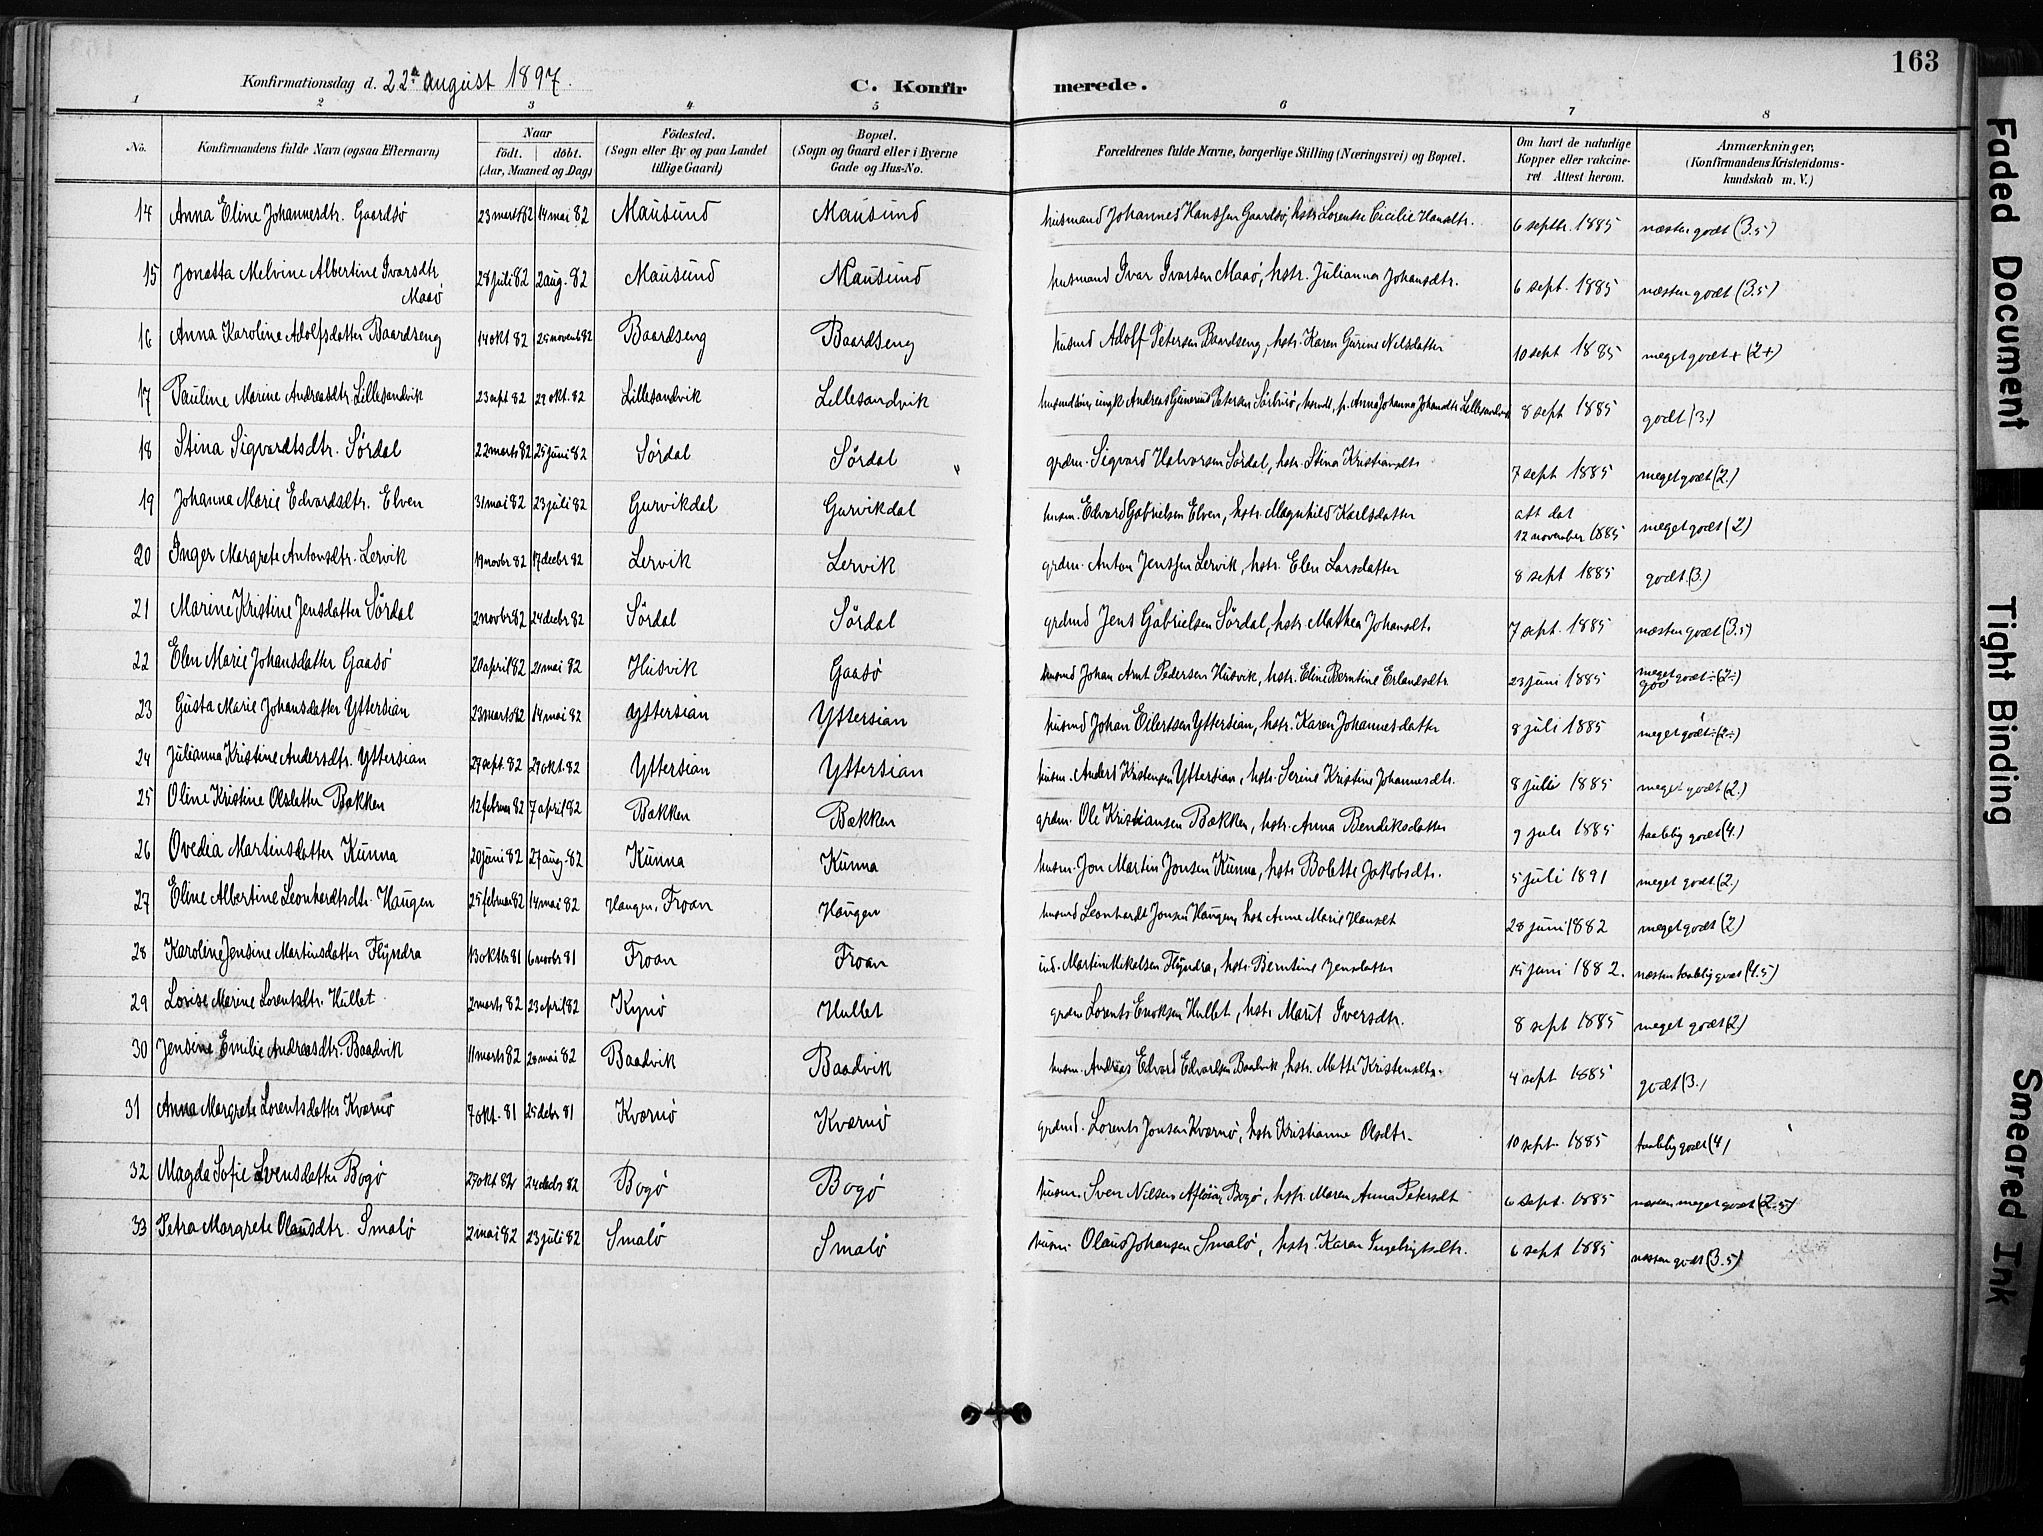 163
Konfirmationsdag d. 22de August 1897.
C. Konfirmerede.
1 2 3 4 5 6 7 8
No. Konfirmandens fulde Navn (ogsaa Efternavn) Naar født. døbt. (Aar, Maaned og Dag) Födested. (Sogn eller By og paa Landet tillige Gaard) Bopæl. (Sogn og Gaard eller i Byerne Gade og Hus-No. Forældrenes fulde Navne, borgerlige Stilling (Næringsvei) og Bopæl. Om havt de naturlige Kopper eller vakcineret Attest herom. Anmærkninger. (Konfirmandens Kristendomskundskab m. V.)
14 Anna Eline Johannesdtr. Gaardsö 23 marts 82 14 mai 82 Mausund Mausund husmand Johannes Hanssen Gaardsö, hstr Lorentse Cicilie Hansdtr. 6 septbr. 1885 næsten godt (3.5)
15 Jonetta Melvine Albertine Ivarsdtr Maaö 28 juli 82 2 aug. 82 Mausund Mausund husmand Ivar Ivarsen Maaö, hstr. Julianna Johansdtr. 6 sept. 1885 næsten godt (3.5)
16 Anna Karoline Adolfsdatter Baardseng 14 okt 82 25 novemb 82 Baardseng Baardseng husmd Adolf Petersen Baardseng, hstr. Karen Gurine Nilsdatter 10 sept 1885 meget godt + (2+)
17 Pauline Marine Andreasdtr. Lillesandvik 23 sept 82 29 okt. 82 Lillesandvik Lillesandvik ungk Andreas Petersen p. Anna Johanna Johansdtr Lillesandvik 8 sept 1885 godt (3.)
18 Stina Sigvardtsdtr. Sördal 22 marts 82 25 juni 82 Sördal Sördal grdm. Sigvard Halvorsen Sördal, hstr. Stina Kristiansdtr 7 sept 1885 meget godt (2.)
19 Johanna Marie Edvardsdtr. Elven 31 mai 82 23 juli 82 Gurvikdal Gurvikdal husm. Edvard Gabrielsen Elven, hstr. Magnhild Karlsdatter att dat 12 november 1885 meget godt (2)
20 Inger Margrete Antonsdtr. Lervik 19 novbr 82 17 decbr 82 Lervik Lervik grdm. Anton Jenssen Lervik, hstr. Elen Larsdatter 8 sept 1885 godt (3.)
21 Marine Kristine Jensdatter Sördal 2 novbr 82 24 decbr 82 Sördal Sördal grdmd Jens Gabrielsen Sördal, hstr. Mathea Johansdt. 7 sept. 1885 næsten godt (3.5)
22 Elen Marie Johansdatter Gaasö 20 april 82 21 mai 82 Husvik Gaasö husmd Johan Arnt Pedersen Husvik, hstr. Eline Berntine Erlandsdtr. 23 juni 1885 meget godt ÷ (2÷)
23 Gusta Marie Johansdatter Yttersian 23 marts 82 14 mai 82 Yttersian Yttersian husmd Johan Eilertsen Yttersian, hstr. Karen Johannesdatter 8 juli 1885 meget godt ÷ (2÷)
24 Julianna Kristine Andersdtr. Yttersian 27 sept. 82 29 okt. 82 Yttersian Yttersian husm. Anders Kristensen Yttersian, hstr. Serine Kristine Johannesdtr. 8 juli 1885 meget godt (2.)
25 Oline Kristine Olsdatter Bakken 12 februar 82 7 april 82 Bakken Bakken grdm. Ole Kristiansen Bakken, hstr. Anna Bendiksdatter 9 juli 1885 taalelig godt (4.)
26 Ovedia Martinsdatter Kunna 20 juni 82 27 aug. 82 Kunna Kunna husm. Jon Martin Jonsen Kunna, hstr Bolette Jakobsdtr. 5 juli 1891 meget godt (2.)
27 Eline Albertine Leonhardtsdtr. Haugen 25 februar 82 14 mai 82 Haugen, Froan Haugen husmd Leonhardt Jonsen Haugen, hstr Anne Marie Hansdt 28 juni 1882 meget godt (2)
28 Karoline Jensine Martinsdatter Flyndra 13 oktbr 81 6 novbr 81 Froan Froan ind. Martin Mikalsen Flyndra, hstr. Berntine Jensdatter 15 juni 1882. næsten taalelig godt (4.5)
29 Lovise Marine Lorentsdtr. Hullet 2 marts 82 23 april 82 Kynö Hullet grdm Lorents Enoksen Hullet, hstr Marit Iversdtr. 8 sept 1885 meget godt (2)
30 Jensine Emilie Andreasdtr. Baadvik 11 marts 82 20 mai 82 Baadvik Baadvik husm. Andreas Edvard Edvardsen Baadvik, hstr. Mette Kristensdtr. 4 sept 1885 godt (3.)
31 Anna Margrete Lorentsdatter Kværnö 7 okt. 81 25 decbr 81 Kværnö Kværnö grdmd. Lorents Jonsen Kværnö, hstr Kristianne Olsdtr. 10 sept. 1885 taalelig godt (4)
32 Magda Sofie Svensdatter Bogö 29 okt 82 24 decbr 82 Bogö Bogö husm. Sven Nilsen Bogö, hstr. Maren Anna Petersdt 6 sept. 1885 næsten meget godt (2.5)
33 Petra Margrete Olausdtr. Smalö 2 mai 82 23 juli 82 Smalö Smalö husm. Olaus Johansen Smalö, hstr. Karen Ingebrigtsdtr. 6 sept 1885 næsten godt (3.5)
Faded Document
Tight Binding
Smeared Ink